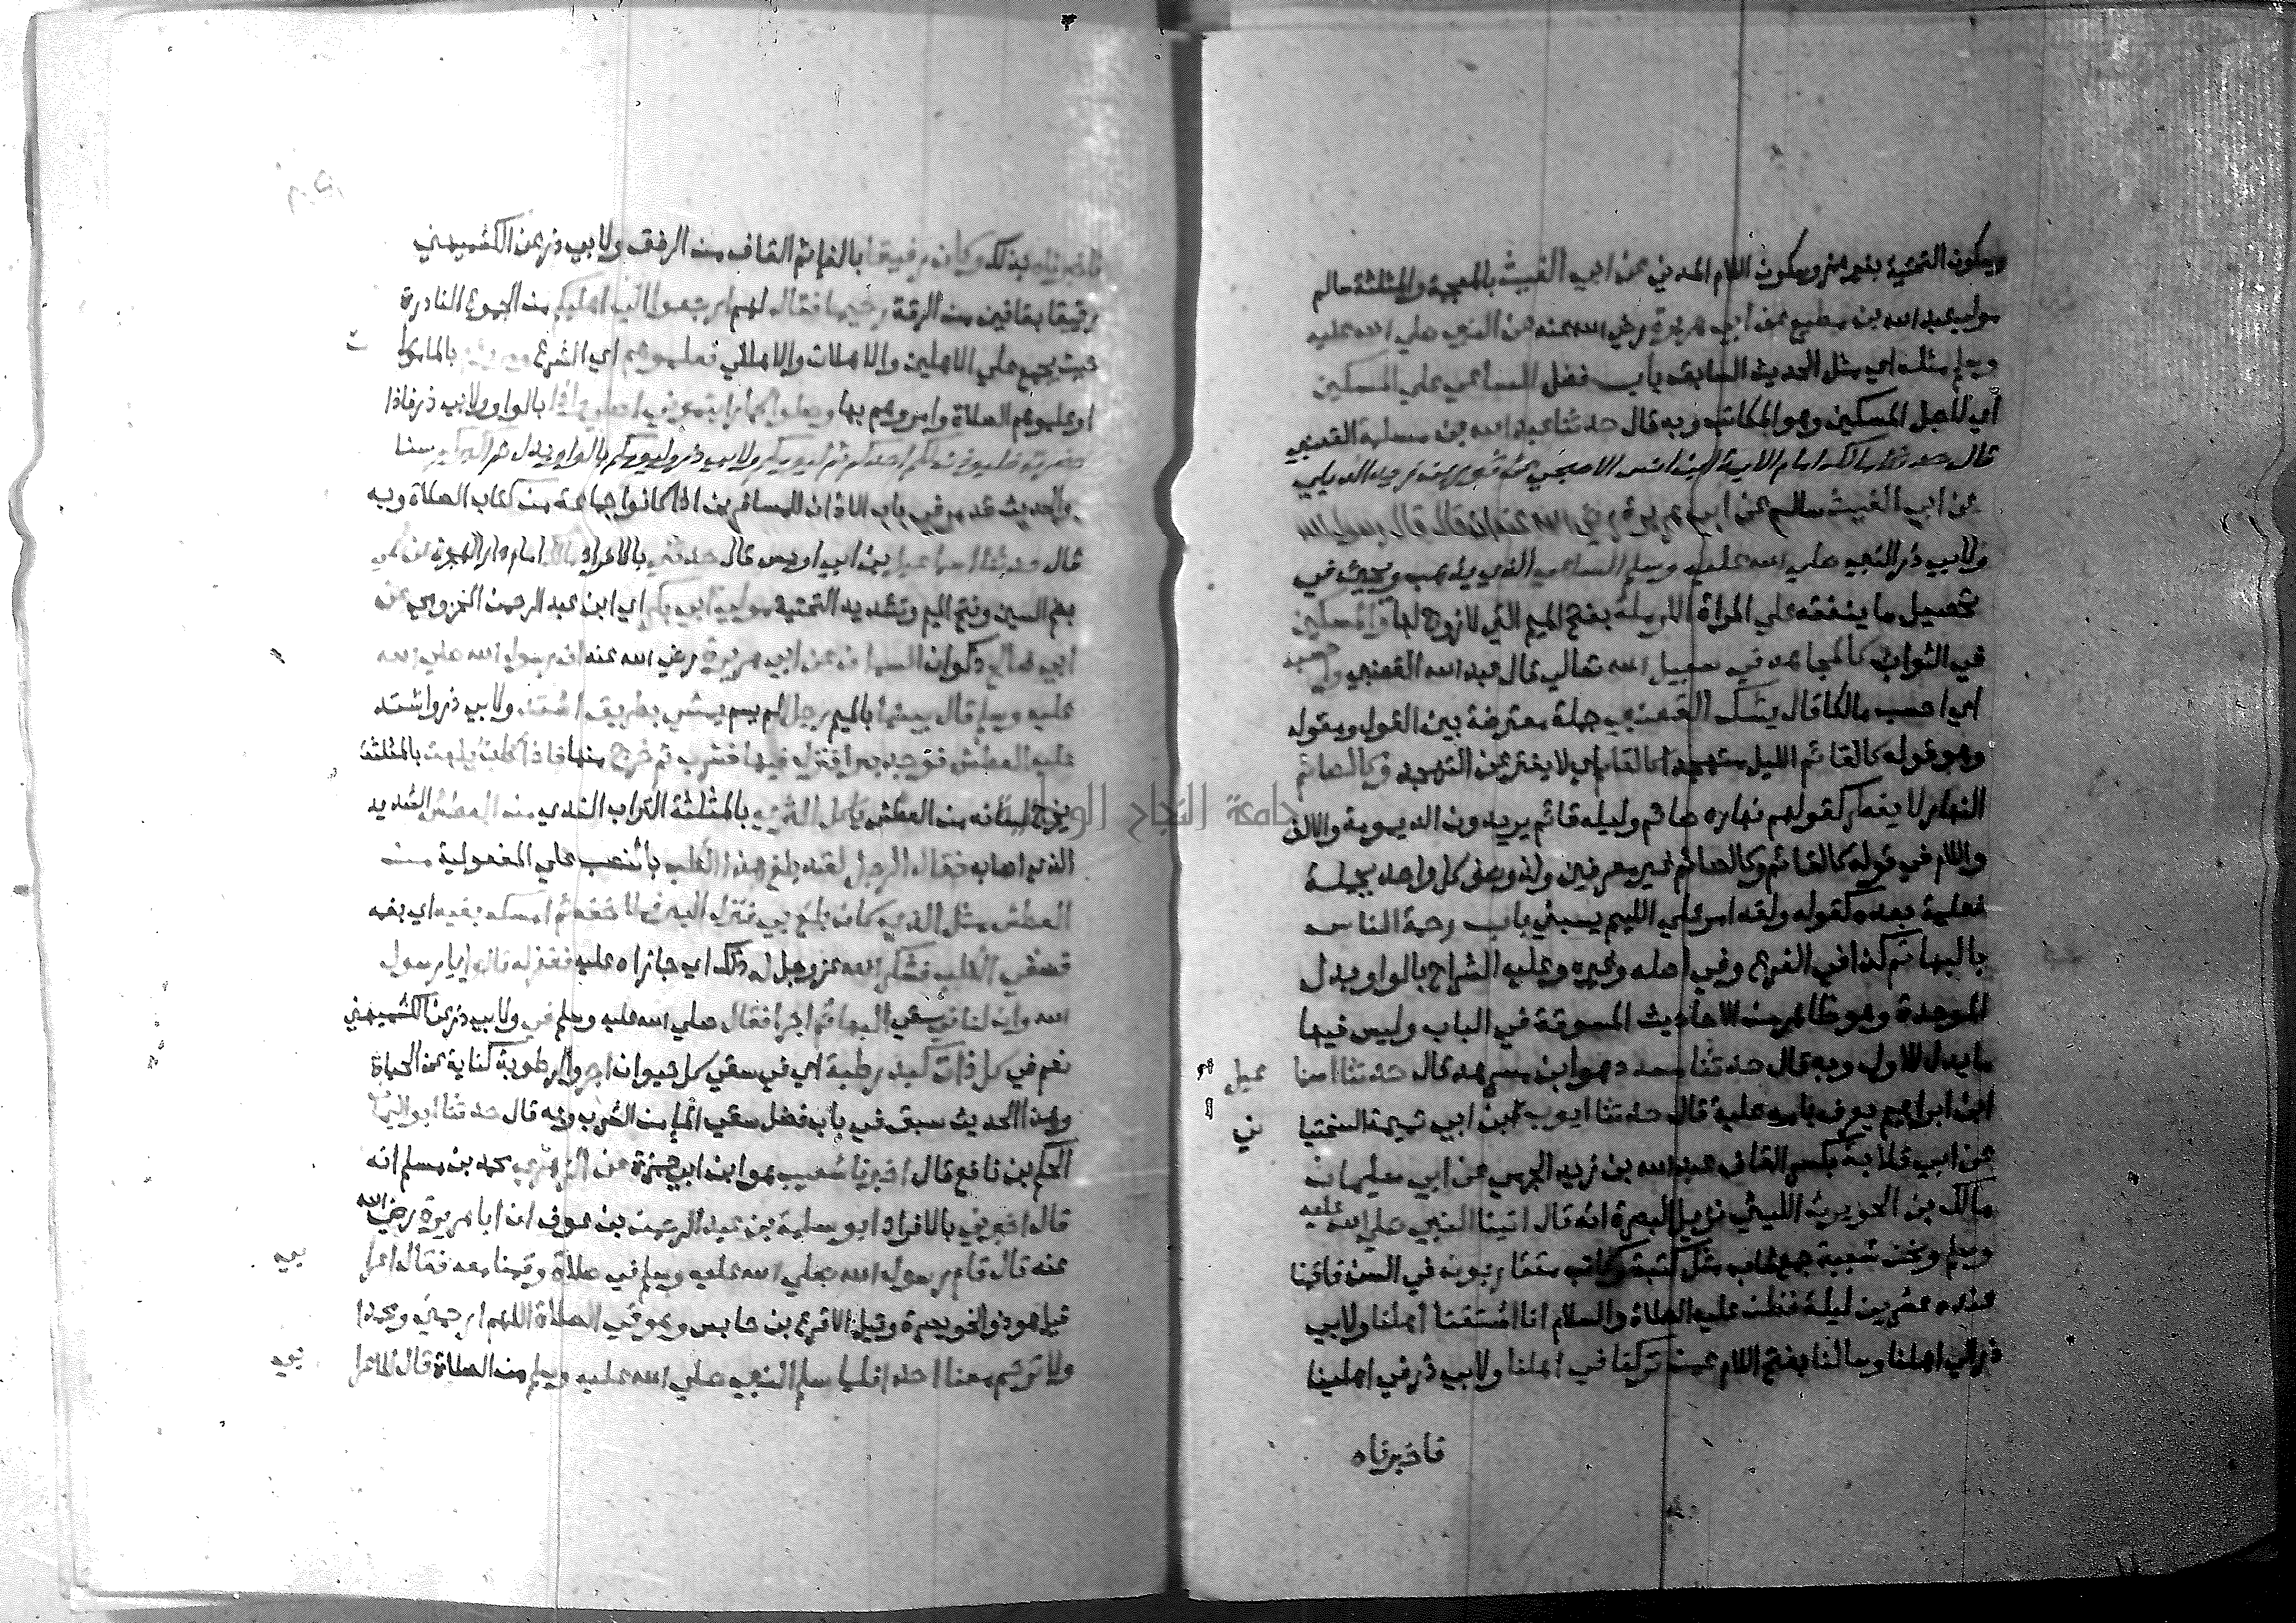 وسكون التحتية بغير همز وسكون اللام المدني عن ابي الغيث بالمعجمة والمثلثة سالم
مولي عبد الله بن مطيع عن ابي هريرة رضي الله عنه عن النبي صلي الله عليه
وسلم مثله اي مثل الحديث السابق باب فضل الساعي علي المسكين
اي لاجل المسكين وهو المكاتب وبه قال حدثنا عبد الله بن مسلمة القعنبي
قال حدثنا مالك امام الايمة ابن انس الاصبحي عن ثور بن زيد الديلي
عن ابي الغيث سالم عن ابي هريرة رضي الله عنه انه قال قال رسول الله
ولابي ذر النبي صلي الله عليه وسلم الساعي الذي يذهب ويجيئ في
تحصيل ما ينفقه علي المراة الارملة بفتح الميم التي لا زوج لها والمسكين
في الثواب كالمجاهد في سبيل الله تعالي قال عبد الله القعنبي واحسبه
اي احسب مالكا قال يشك القعنبي جملة معترضة بين القول ومقوله
وهو قوله كالقائم الليل متهجدا لا يفتر عن التهجد وكالصائم
النهار لا يفطر كقولهم نهاره صائم وليله قائم يريدون الديمومة والالف
واللام في قوله كالقائم وكالصائم غير معرفين ولذا وصف كل واحد بجملة
فعلية بعده كقوله ولقد امر علي اللئيم يسبني باب رحمة الناس
بالبهائم كذا في الفرع وفي اصله وغيره وعليه الشراح بالواو بدل
الموحدة وهو ظاهر من الاحاديث المسوقة في الباب وليس فيها
ما يدل للاول وبه قال حدثنا مسدد هو ابن مسرهد قال حدثنا اسما عيل
ابن ابراهيم يعرف بابن علية قال حدثنا ايوب ابن ابي تميمة السختيا ني
عن ابي قلابة بكسر القاف عبد الله بن زيد الجرمي عن ابي سليمان
مالك بن الحويرث الليثي نزيل البصرة انه قال اتينا النبي صلي الله عليه
وسلم ونحن شببة جمع شاب مثل كتبة وكاتب متقاربون في السن فاقمنا
عنده عشرين ليلة فظن عليه الصلاة والسلام انا اشتقنا اهلنا ولابي
ذر الي اهلنا وسالنا بفتح اللام عمن تركنا في اهلنا ولابي ذر في اهلينا
فاخبرناه
فاخبرناه بذلك وكان رفيقا بالفاء ثم القاف من الرفق ولابي ذر عن الكشميهني
رقيقا بقافين من الرقة رحيما فقال لهم ارجعوا الي اهليكم من الجموع النادرة
حيث يجمع علي الاهلين والاهلات والاهالي فعلموهم اي الشرع بالمامورات
او علموهم الصلاة ومروهم بها وصلوا كما رايتموني اصلي واذا بالواو ولابي ذر فاذا
حضرت فليوذن لكم احدكم ثم ليومكم ولابي ذر وليومكم بالواو بدل ثم اكبركم سنا
والحديث قد مر في باب الاذان للمسافرين اذا كانوا جماعة من كتاب الصلاة وبه
قال حدثنا اسماعيل بن ابي اويس قال حدثني بالافراد مالك امام دار الهجرة عن سمي
بضم السين وفتح الميم وتشديد التحتية مولي ابي بكر اي ابن عبد الرحمن المخزومي عن
ابي صالح ذكوان السمان عن ابي هريرة رضي الله عنه ان رسول الله صلي الله
عليه وسلم قال بينما بالميم رجل لم يسم يمشي بطريق اشتد ولابي ذر واشتد
عليه العطش فوجد بيرا فنزل فيها فشرب ثم خرج منها فاذا كلب يلهث بالمثلثة
يخرج لسانه من العطش ياكل الثري بالمثلثة التراب الندي من العطش الشديد
الذي اصابه فقال الرجل لقد بلغ هذا الكلب بالنصب علي المفعولية من
العطش مثل الذي كان بلغ بي فنزل البير فملا خفه ثم امسكه بفيه اي بفمه
فسقي الكلب فشكر الله عز وجل له ذلك اي جازاه عليه فغفر له قالوا يا رسول
الله وان لنا في سقي البهائم اجرا فقال صلي الله عليه وسلم في ولابي ذر عن الكشميهني
نعم في كل ذات كبد رطبة اي في سقي كل حيوان اجر والرطوبة كناية عن الحياة
وهذا الحديث سبق في باب فضل سقي الماء من الشرب وبه قال حدثنا ابو اليمان
الحكم بن نافع قال اخبرنا شعيب هو ابن ابي حمزة عن الزهري محمد بن مسلم انه
قال اخبرني بالافراد ابو سلمة بن عبد الرحمن بن عوف ان ابا هريرة رضي الله
عنه قال قام رسول الله صلي الله عليه وسلم في صلاة وقمنا معه فقال اعرا بي
قيل هو ذو الخويصرة وقيل الاقرع بن حابس وهو في الصلاة اللهم ارحمني ومحمدا
ولا ترحم معنا احدا فلما سلم النبي صلي الله عليه وسلم من الصلاة قال للاعرا بي
جامعة النجاح